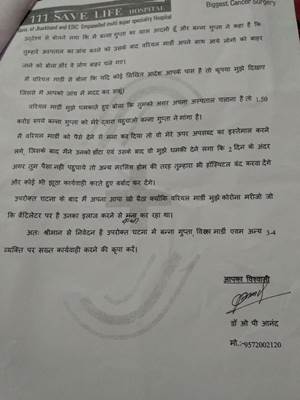 111 SAVE LIFE HOSPITAL
Biggest Cancer Surgery
of Jharkhand and EDIC Empanelled multi super speciality Hospital
बोलने लगा कि मैं बन्ना गुप्ता का खास आदमी हूँ और बन्ना गुप्ता ने कहा है कि
तुम्हारे अस्पताल का जांच करने को उसके बाद वरियल मार्डी अपने साथ आये लोगों को बाहर
जाने को बोला और वे लोग बाहर चले गए।
मैं वरियल मार्डी से बोला कि यदि कोई लिखित आदेश आपके पास है तो कृपया मुझे दिखाए
जिससे मैं आपको जांच में मदद कर सकूं।
वरियल मार्डी मुझे धमकाते हुए बोला कि तुमको अगर अपना अस्पताल चलाना है तो 1.50
करोड़ रूपये बन्ना गुप्ता को मेरे द्वारा पहुचाओ बन्ना गुप्ता ने मांगा है।
मैं वरियल मार्डी को पैसे देने से मना कर दिया तो वो मेरे ऊपर अपशब्द का इस्तेमाल करने
लगे, जिसके बाद मैंने उनको डाँटा एवं उसके बाद वो मुझे धमकी देने लगा कि 2 दिन के अंदर
अगर तुम पैसा नहीं पहुचाये तो अन्य नरसिंग होम की तरह तुम्हारा भी हॉस्पिटल बंद करवा देंगे
और कोई भी झूठा कार्यवाही करते हुए बर्बाद कर देंगे।
उपरोक्त घटना के बाद मैं अपना आपा खो बैठा क्योंकि वरियल मार्डी मुझे कोरोना मरीजो जो
कि वेंटिलेटर पर है उनका इलाज करने से मना कर रहा था।
अतः श्रीमान से निवेदन है उपरोक्त घटना में बन्ना गुप्ता, मार्डी एवम अन्य 3-4
व्यक्ति पर सख्त कार्यवाही करने की कृपा करें।
आपका विश्वासी
डॉ ओ पी आनंद
मो.:-9572002120